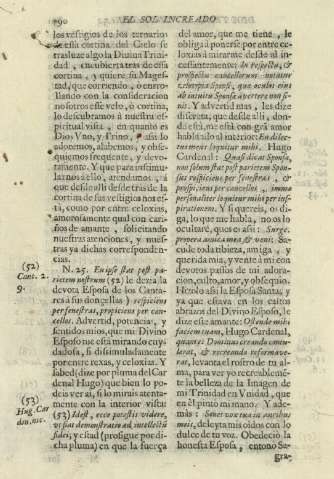 190 EL SOL INCREADO
los vestigios de los ternarios
de essa cortina del Cielo se
trasluze algo la Divina Trini-
dad, encubierta tras de essa
cortina, y quiere su Magest-
tad, que corriendo, o enro-
llando con la consideracion
nosotros esse velo, ò cortina,
lo descubramos à nuestra es-
piritual vista, en quanto es
Dios Vno, y Trino, y assi lo
adoremos, alabemos, y obse-
quiemos frequente, y devo-
tamente. Y que para estimu-
larnos à ello, atendamos, à
que desde alli desde tras de la
cortina de sus vestigios nos es-
tà, como por entre celoxias,
amorosamente qual con cari-
ños de amante, solicitando
nuestras atenciones, y nues-
tras ya dichas corresponden-
cias.
(52)
Cant. 2.
9.
N. 25. En ipse stat post pa-
rietem nostrum (52) le dezia la
devota Esposa de los Canta-
res à sus doncellas) respiciens
per fenestras, prospiciens per can-
cellos. Advertid, potencias,
sentidos mios, que mi Divino
Esposo me està mirando cuy-
dadosa, si dissimuladamente
por entre rexas, y celoxias. Y
sabed (dize por pluma del Car-
denal Hugo) que bien lo po-
deis ver ai, si lo mirais atenta-
mente con la interior vista:
(53)
Hug. Car
den. hic.
(53) Idest, ecce potestis videre,
vt fiat demonstratio ad intellectũ
fidei, y estad (prosigue por di-
cha pluma) en que la fuerça
del amor, que me tiene, le
obliga à ponerse por entre ce-
loxias à mirarme desde ai in-
cessantemente: In respectu, &
prospectu cancellorum notatur
erga Sponsa, que oculos eius
ab intuitu Sponsæ avertere non si-
nit. Y advertid mas, les dize
discreta, que desde alli, don-
de està, me està con grã amor
hablando al interior: En dilec-
tus meus loquitur mihi. Hugo
Cardenal: Quasi dicat Sponsa,
non solum stat post parietem Spon-
sus respiciens per fenestras, &
prospiciens per cancellos, immo
personaliter loquitur mihi per ins-
pirationem. Y si quereis, os di-
ga, lo que me habla, no os lo
ocultarè, que es assi: Surge,
propera amica mea & veni: Sa-
cude toda tibieza, amiga, y
querida mia, y vente à mi con
devotos passos de mi adora-
cion, culto, amor, y obsequio.
Hizolo assi la Esposa Santa, y
ya que estava en los castos
abrazos del Divino Esposo, le
dize este amante: Ostende mihi
faciem tuam, Hugo Cardenal,
quantei Dominus creando conten-
derat, & recreando reformave-
rat, levanta el rostro de tu al-
ma, para ver yo recreablemẽn-
te la belleza de la Imagen de
mi Trinidad en Vnidad, que
en èl pintò mi mano. Y ade-
màs: Sonet vox tua in auribus
meis, deleyta mis oidos con lo
dulce de tu voz. Obedeciò la
honesta Esposa, entonò Sa-
gra-